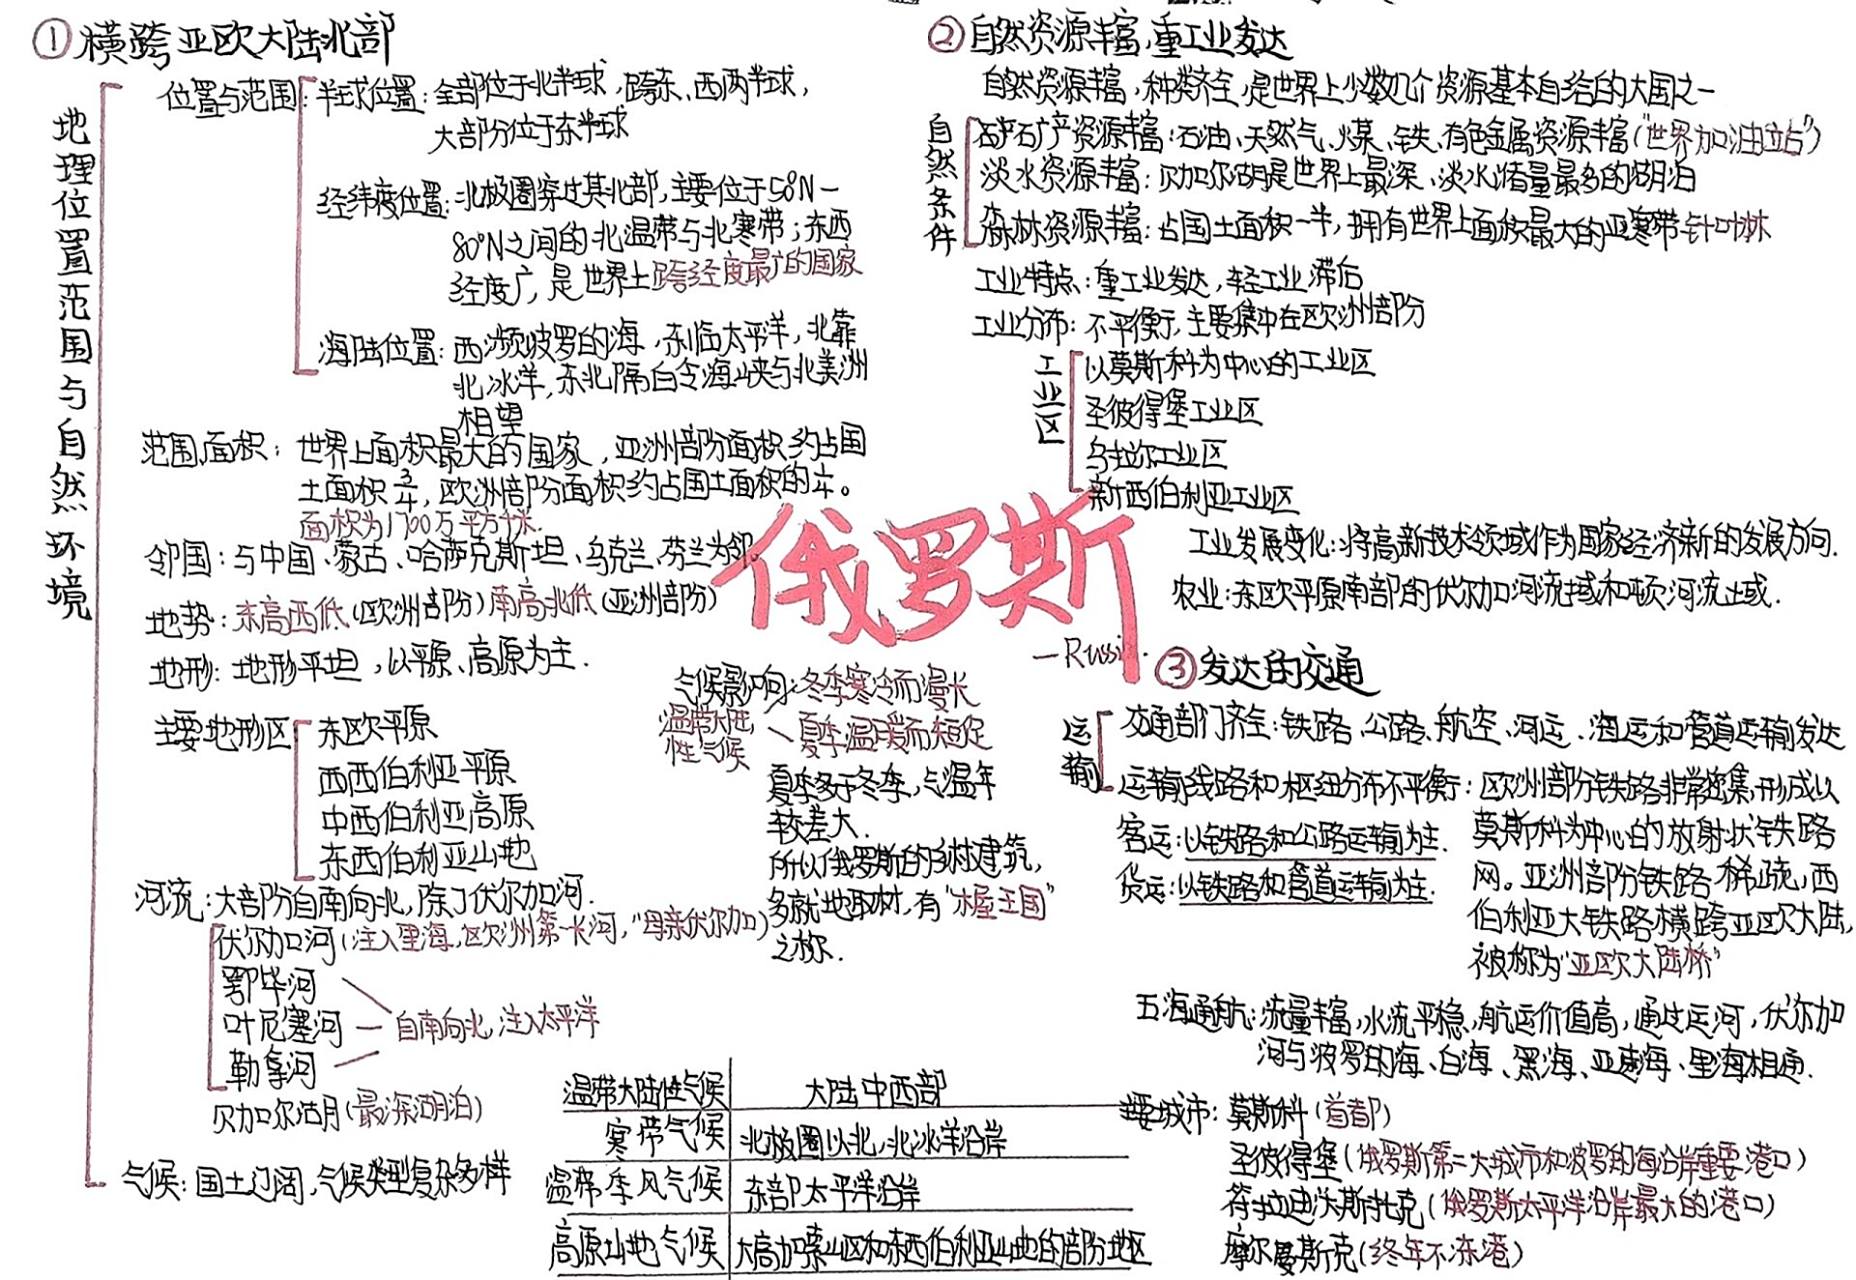 ①横跨亚欧大陆北部
地理位置范围与自然环境
位置与范围:半球位置:全部位于北半球,跨东、西两半球,
大部分位于东半球
经纬度位置:北极圈穿过其北部,主要位于50°N-
80°N之间的北温带与北寒带;东西
经度广,是世界上跨经度最广的国家
海陆位置:西濒波罗的海,东临太平洋,北靠
北冰洋,东北隔白令海峡与北美洲
相望
范围、面积:世界上面积最大的国家,亚洲部分面积约占国
土面积3/4,欧洲部分面积约占国土面积的1/4。
面积为1700万平方千米.
邻国:与中国、蒙古、哈萨克斯坦、乌克兰、芬兰为邻。
地势:东高西低(欧洲部分)南高北低(亚洲部分)
地形:地形平坦,以平原、高原为主.
主要地形区
东欧平原
西西伯利亚平原
中西伯利亚高原
东西伯利亚山地
河流:大部分自南向北,除了伏尔加河.
伏尔加河(注入里海,欧洲第一长河,"母亲伏尔加)
鄂毕河
叶尼塞河—自南向北,注入太平洋
勒拿河
贝加尔湖(最深湖泊)
气候:国土辽阔,气候类型复杂多样
温带大陆性气候 大陆中西部
寒带气候 北极圈以北,北冰洋沿岸
温带季风气候 东部太平洋沿岸
高原山地气候 大高加索山区和东西伯利亚山地的部分地区
俄罗斯
气候影响:冬季寒冷而漫长
温带大陆性气候
夏季温暖而短促
夏季多于冬季,气温年
较差大.
所以俄罗斯的乡村建筑,
多就地取材,有"木屋王国"
之称.
②自然资源丰富,重工业发达
自然资源丰富,种类齐全,是世界上少数几个资源基本自给的大国之一
自然条件
矿产资源丰富:石油、天然气、煤、铁、有色金属资源丰富("世界加油站")
淡水资源丰富:贝加尔湖是世界上最深、淡水储量最多的湖泊
森林资源丰富:占国土面积一半,拥有世界上面积最大的亚寒带针叶林
工业特点:重工业发达,轻工业滞后
工业分布:不平衡,主要集中在欧洲部分
工业区
以莫斯科为中心的工业区
圣彼得堡工业区
乌拉尔工业区
新西伯利亚工业区
工业发展变化:将高新技术领域作为国家经济新的发展方向.
农业:东欧平原南部的伏尔加河流域和顿河流域.
③发达的交通
运输
交通部门齐全:铁路、公路、航空、河运、海运和管道运输发达
运输线路和枢纽分布不平衡:欧洲部分铁路非常密集,形成以
莫斯科为中心的放射状铁路
网。亚洲部分铁路稀疏,西
伯利亚大铁路横跨亚欧大陆,
被称为"亚欧大陆桥"
客运:以铁路和公路运输为主.
货运:以铁路和管道运输为主.
五海通航:流量丰富,水流平稳,航运价值高,通过运河,伏尔加
河与波罗的海、白海、黑海、亚速海、里海相通.
主要城市:莫斯科(首都)
圣彼得堡(俄罗斯第二大城市和波罗的海沿岸重要港口)
符拉迪沃斯托克(俄罗斯太平洋沿岸最大的港口)
摩尔曼斯克(终年不冻港)